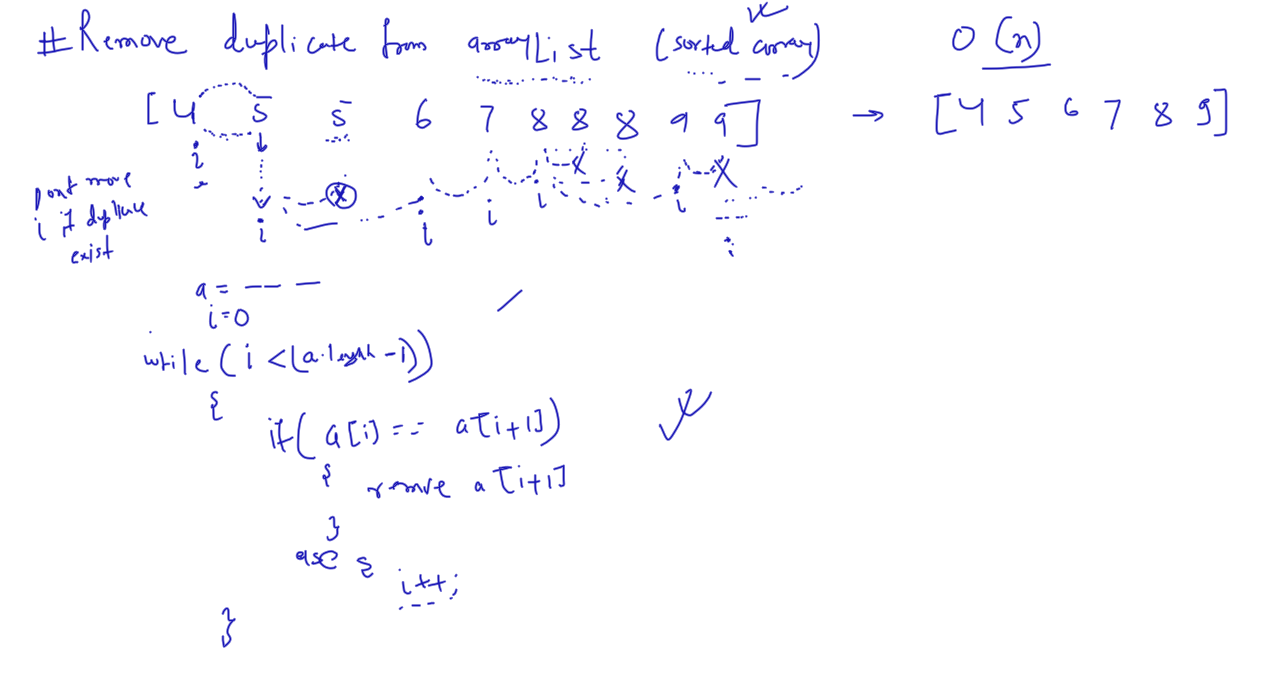 #Remove duplicate from arrayList (sorted array) O(n)
[4 5 5 6 7 8 8 8 9 9] → [4 5 6 7 8 9]
i
i x i i i x x i x
i
Dont move
i if duplicate
exist
a = -- -
i=0
while(i <(a.length -1))
{
if(a[i) == a[i+1])
{
remove a[i+1]
}
else {
i++;
}